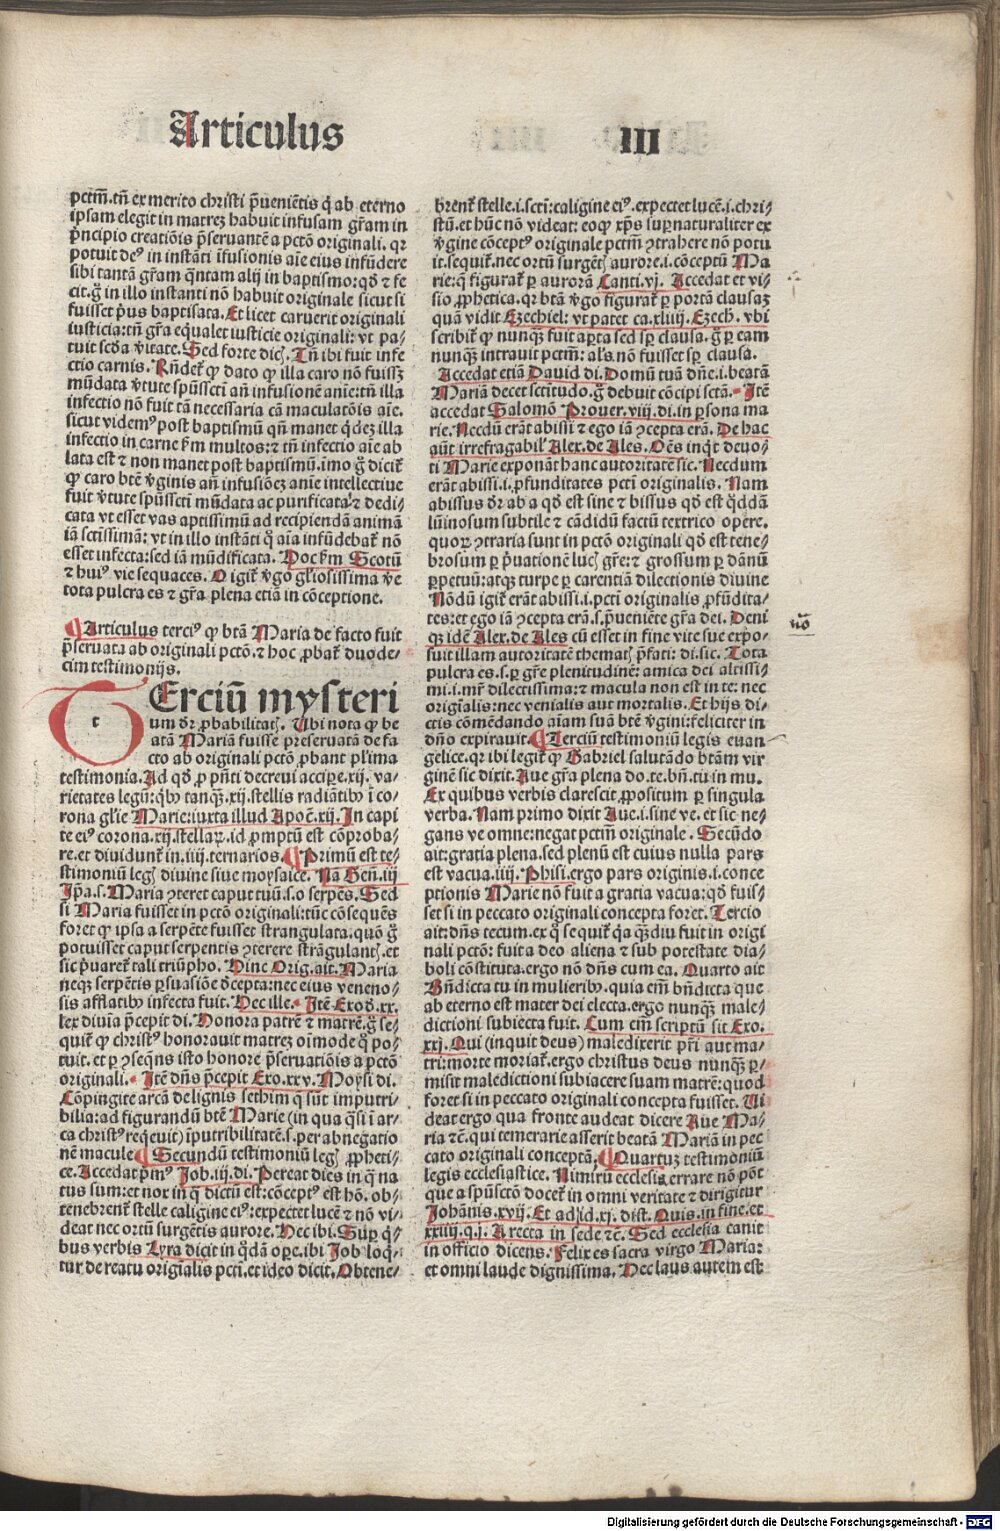 Articulus III
pctm̄.tn̄ ex merito christi p̄uenie͂tis q̓ ab eterno
ipsam elegit in matreʒ habuit infusam gr̄am in
p̓ncipio creatiōis p̄seruantē a pctō originali. qꝛ
potuit deꝰ in instāti īfusionis aīe eius infūdere
sibi tantā gr̄am qͣntam alij in baptismo: qd̓ ⁊ fe
cit. g̓ in illo instanti nō habuit originale sicut si
fuisset p̓us baptisata. Et licet caruerit originali
iusticia: tn̄ gr̄a eq̓ualet iusticie originali: vt pa⸗
tuit scd̓a v̓itate. Sed forte dic̄. Tn̄ ibi fuit infe
ctio carnis. Rn̄det̄ ꝙ dato ꝙ illa caro nō fuissʒ
mūdata v̓tute spūssctī an̄ infusionē anīe: tn̄ illa
infectio nō fuit tā necessaria cā maculatōis aīe.
sicut videmꝰ post baptismū qn̄ manet q̓deʒ illa
infectio in carne ẜm multos: ⁊ tn̄ infectio aīe ab
lata est ⁊ non manet post baptismū. īmo g̓ dicit̄
ꝙ caro btē v̓ginis an̄ infusiōeʒ anīe intellectiue
fuit v̓tute spūssctī mūdata ac purificata ⁊ dedi⸗
cata vt esset vas aptissimū ad recipiendā animā
iā sctīssimā: vt in illo instāti q̓ aīa infūdebat̄ nō
esset infecta: sed iā mūdificata. Hoc ẜm Scotū
⁊ huiꝰ vie sequaces. O igit̄ v̓go gl̓iosissima ve
tota pulcra es ⁊ gr̄a plena etiā in cōceptione.
¶ Articulus terciꝰ ꝙ btā Maria de facto fuit
p̄seruata ab originali pctō. ⁊ hoc ꝓbat̄ duode⸗
cim testimonijs.
TErciū mysteri
um dr̄ ꝓbabilitatꝭ. Ubi nota ꝙ be
atā Mariā fuisse preseruatā de fa
cto ab originali pctō ꝓbant pl̓ima
testimonia. Ad qd̓ ꝓ pn̄ti decreui accipe. xij. va⸗
rietates legū: qͥbꝰ tanqͣʒ. xij. stellis radiātibꝰ ī co⸗
rona gl̓ie Marie: iuxta illud Apoc̄. xij. In capi
te eiꝰ corona. xij. stellaꝝ. id ꝓmptū est cōproba⸗
re. et diuidunt̄ in. iiij. ternarios. ¶ Primū est te⸗
stimoniū legꝭ diuine siue moysaice. Na Gen̄. iij
Ip̄a. s. Maria ꝯteret caput tuū. s. o serpēs. Sed
si Maria fuisset in pctō originali: tūc cōsequēs
foret ꝙ ipsa a serpēte fuisset strangulata. quō g̓
potuisset caput serpentis ꝯterere strāgulantꝭ. et
sic p̓uaret̄ tali triūpho. Hinc Orig. ait. Maria
neqʒ serpētis ꝑsuasiōe d̓cepta: nec eius veneno⸗
sis afflatibꝰ infecta fuit. Hec ille. Itē Exod̓. xx.
lex diuīa p̄cepit di. Honora patrē ⁊ matrē. g̓ se⸗
quit̄ ꝙ christꝰ honorauit matreʒ oīmode q̓ po⸗
tuit. et ꝑ ꝯseqn̄s isto honore p̄seruatiōis a pctō
originali. Itē dn̄s p̄cepit Exo. xxv. Moysi di.
Cōpingite arcā de lignis sethim q̓ sūt imputri⸗
bilia: ad figurandū btē Marie (in qua qͣsi ī ar⸗
ca christꝰ req̓euit) īputribilitatē. s. per abnegatio
nē macule ¶ Secundū testimoniū legꝭ ꝓpheti⸗
ce. Accedat pͥmꝰ Job. iij. di. Pereat dies in qͣ na
tus sum: et nox in qͣ dictū est: cōceptꝰ est hō. ob⸗
tenebrent̄ stelle caligine eiꝰ: expectet lucē ⁊ nō vi⸗
deat nec ortū surgētis aurore. Hec ibi. Suꝑ qͥ⸗
bus verbis Lyra dicit in qͦdā oꝑe. ibi Job loqͥ⸗
tur de reatu origīalis pctī. et ideo dicit. Obtene⸗
brent̄ stelle. i. sctī: caligine eiꝰ. expectet lucē. i. chri⸗
stū. et hūc nō videat: eoqꝫ xp̄s suꝑnaturaliter ex
v̓gine cōceptꝰ originale pctm̄ ꝯtrahere nō potu
it. sequit̄. nec ortū surgētꝭ aurore. i. cōceptū Ma
rie: q̓ figurat̄ ꝑ aurorā Canti. vj. Accedat et vi⸗
sio ꝓphetica. qꝛ btā v̓go figurat̄ ꝑ portā clausaʒ
quā vidit Ezechiel: vt patet ca. xliiij. Ezech. vbi
scribit̄ ꝙ nunqͣʒ fuit aꝑta sed sꝑ clausa. g̓ ꝑ eam
nunqͣʒ intrauit pctm̄: al̓s nō fuisset sꝑ clausa.
Accedat etiā Dauid di. Domū tuā dn̄e. i. beatā
Mariā decet sctītudo. g̓ debuit cōcipi sctā. Itē
accedat Salomō Prouer. viij. di. in ꝑsona ma
rie. Necdū erāt abissi ⁊ ego iā ꝯcepta erā. De hac
aūt irrefragabil̓ Alex. de Ales. Oēs inqͥt deuo⸗
ti Marie exponāt hanc autoritatē sic. Necdum
erāt abissi. i. ꝓfunditates pctī originalis. Nam
abissus dr̄ ab a qd̓ est sine ⁊ bissus qd̓ est qͦddā
lūinosum subtile ⁊ cādidū factū textrico opere.
quoꝝ ꝯtraria sunt in pctō originali qd̓ est tene⸗
brosum ꝑ p̓uationē lucꝭ gr̄e: ⁊ grossum ꝑ dānū
ꝑpetuū: atqʒ turpe ꝑ carentiā dilectionis diuine
Nōdū igit̄ erāt abissi. i. pctī originalis ꝓfūdita⸗
tes: et ego iā ꝯcepta erā. s. p̄ueniēte gr̄a dei. Deni
qʒ idē Alex. de Ales cū esset in fine vite sue expo⸗
suit illam autoritatē thematꝭ p̄fati: di. sic. Tota
pulcra es. s. ꝑ gr̄e plenitudinē: amica dei altissi⸗
mi. i. mr̄ dilectissima: ⁊ macula non est in te: nec
origīalis: nec venialis aut mortalis. Et hijs di⸗
ctis cōmēdando aīam suā btē v̓gini: feliciter in
dn̄o expirauit. ¶ Terciū testimoniū legis euan⸗
gelice. qꝛ ibi legit̄ ꝙ Gabriel salutādo btām vir
ginē sic dixit. Aue gr̄a plena do. te. bn̄. tu in mu.
Ex quibus verbis clarescit ꝓpositum ꝑ singula
verba. Nam primo dixit Aue. i. sine ve. et sic ne⸗
gans ve omne: negat pctm̄ originale. Secūdo
ait: gratia plena. sed plenū est cuius nulla pars
est vacua. iiij. Phisi. ergo pars originis. i. conce
ptionis Marie nō fuit a gratia vacua: qd̓ fuis⸗
set si in peccato originali concepta foret. Tercio
ait: dn̄s tecum. ex qͦ sequit̄ qͣ qͣʒdiu fuit in origi
nali pctō: fuit a deo aliena ⁊ sub potestate dia⸗
boli cōstituta. ergo nō dn̄s cum ea. Quarto ait
Bn̄dicta tu in mulieribꝰ. quia em̄ bn̄dicta que
ab eterno est mater dei electa. ergo nunqͣʒ male⸗
dictioni subiecta fuit. Cum em̄ scriptū sit Exo.
xxj. Qui (inquit deus) maledixerit pr̄i aut ma⸗
tri: morte moriat̄. ergo christus deus nunqͣʒ ꝑ⸗
misit maledictioni subiacere suam matrē: quod
foret si in peccato originali concepta fuisset. Ui
deat ergo qua fronte audeat dicere Aue Ma⸗
ria ⁊c̄. qui temerarie asserit beatā Mariā in pec
cato originali conceptā. ¶ Quartuʒ testimoniū
legis ecclesiastice. Nimirū ecclesia errare nō pōt
que a spūsctō docet̄ in omni veritate ⁊ dirigitur
Johānis. xvij. Et ad id. xj. dist. Quis. in fine. et
xxiiij. q. j. A recta in sede ⁊c̄. Sed ecclesia canit
in officio dicens. Felix es sacra virgo Maria:
et omni laude dignissima. Hec laus autem est
nō
Digitalisierung gefördert durch die Deutsche Forschungsgemeinschaft - DFG